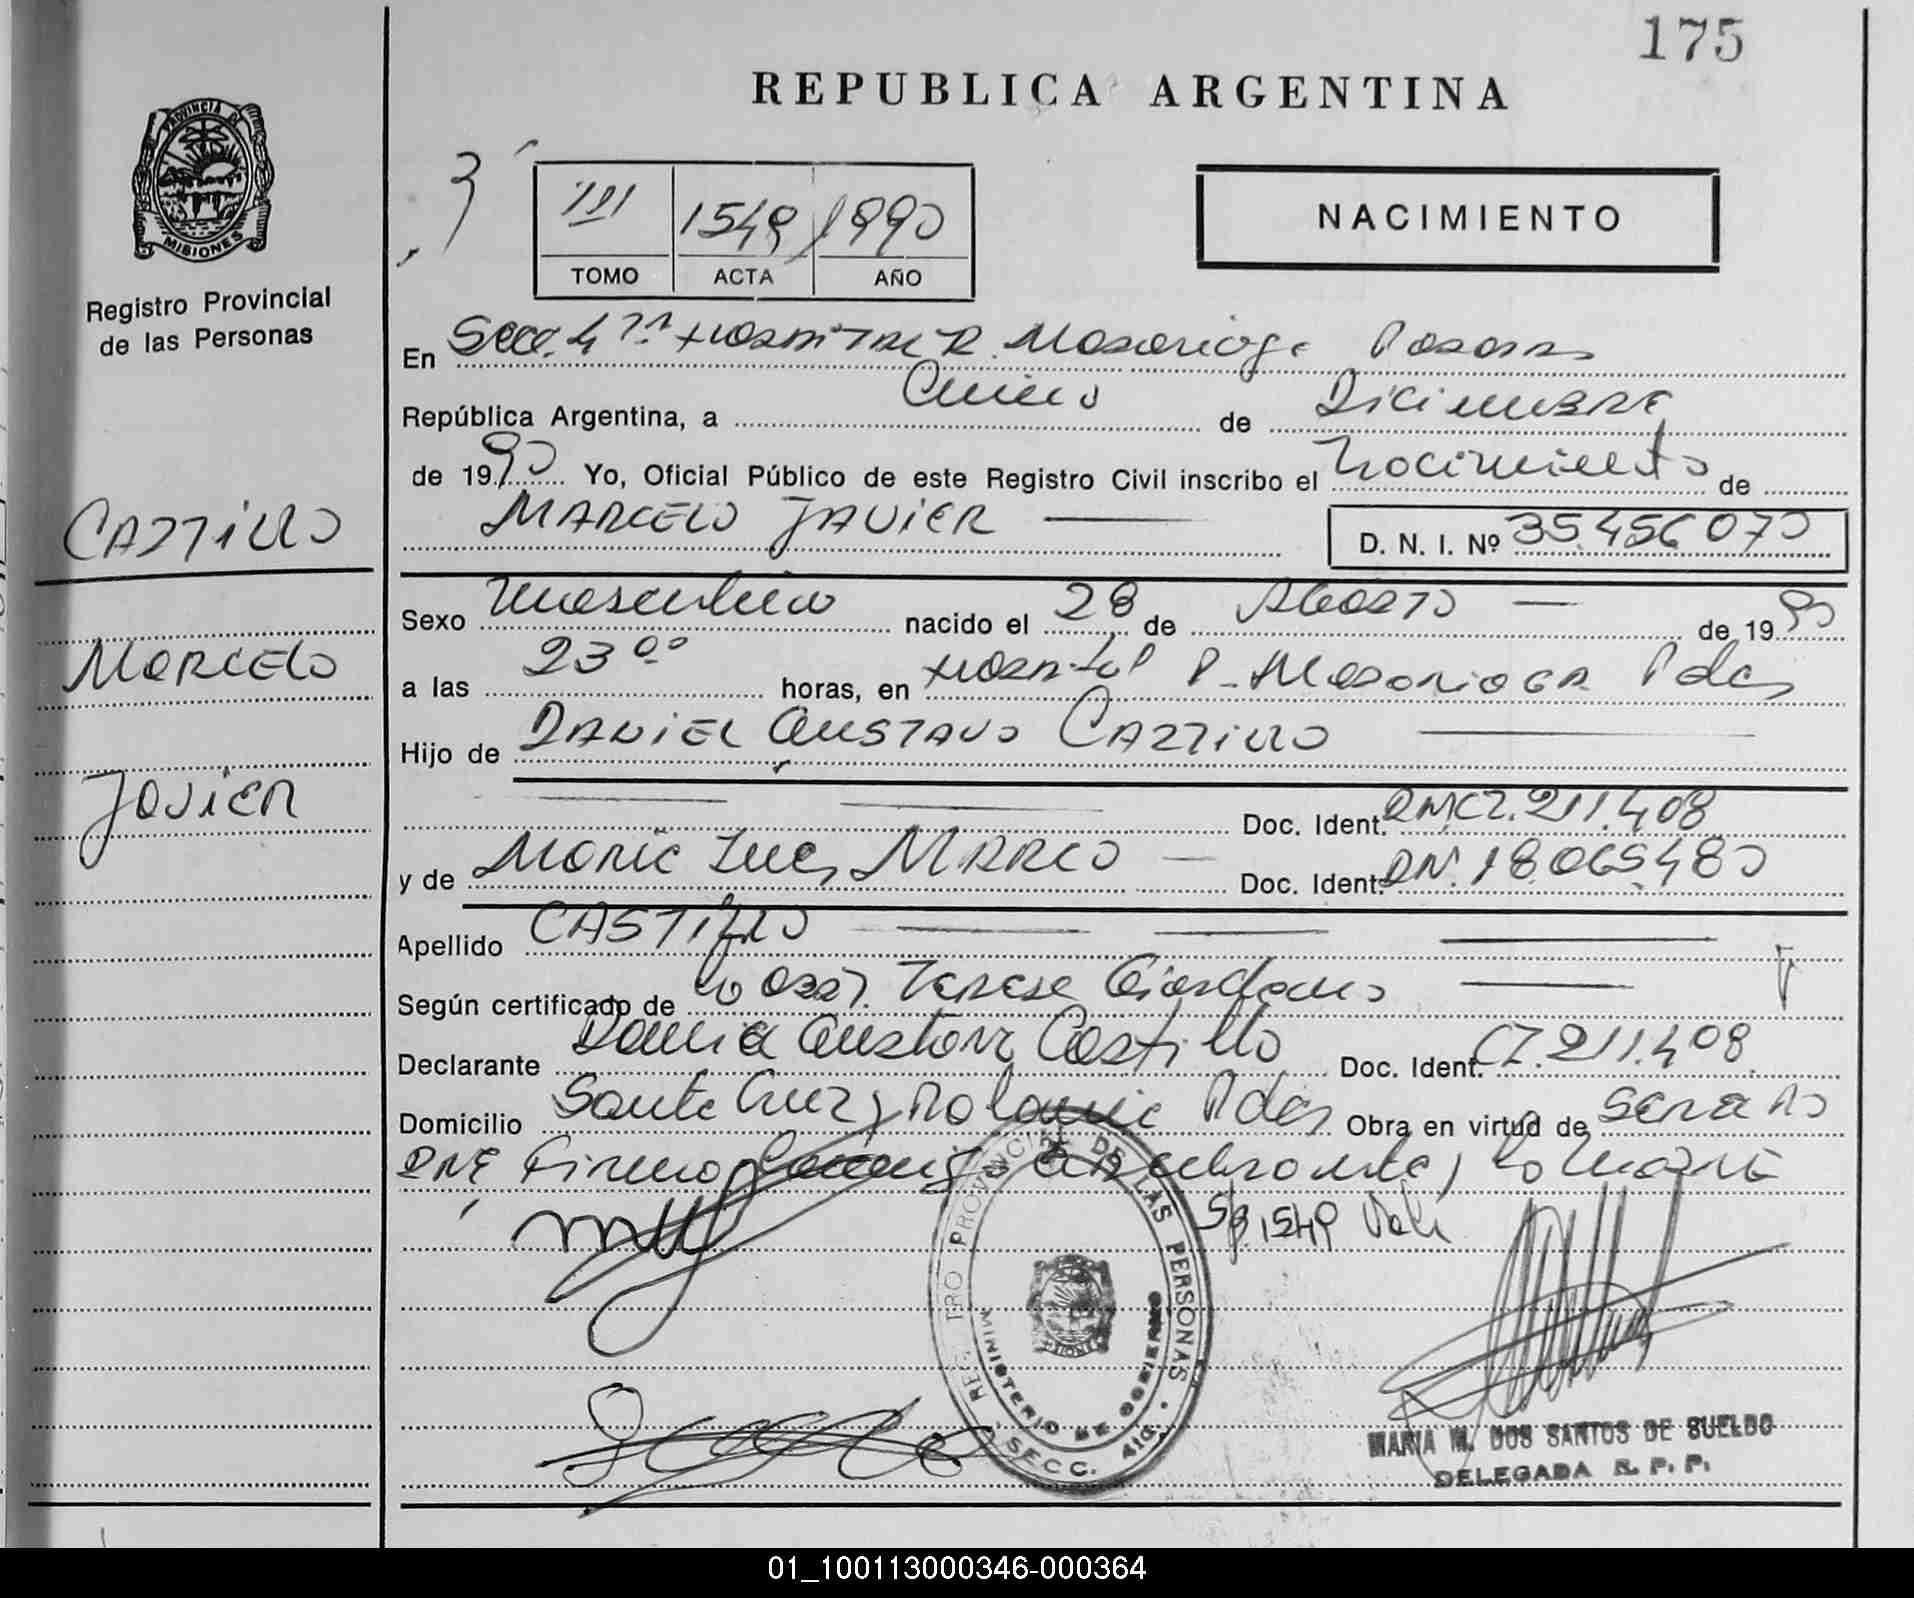 175
REPUBLICA ARGENTINA
PROVINCIA DE
MISIONES
Registro Provincial
de las Personas
III 1549 1990
TOMO ACTA AÑO
NACIMIENTO
En Secc. 4ta Hospital R. Madariaga Posadas
República Argentina, a Cinco de Diciembre
de 1990 Yo, Oficial Público de este Registro Civil inscribo el Nacimiento de
MARCELO JAVIER D. N. I. Nº 35.456.070
CASTILLO
MARCELO
JAVIER
Sexo Masculino nacido el 28 de Agosto de 1990
a las 23 00 horas, en Hospital R. Madariaga Pdas
Hijo de DANIEL GUSTAVO CASTILLO
Doc. Ident. DN.CZ.211.408
y de MARCO Doc. Ident. DN. 18.065.480
Apellido CASTILLO
Según certificado de la Obst. Teresa Giordano
Declarante Daniel Gustavo Castillo Doc. Ident. CZ.211.408
Domicilio Santa Cruz y Polonia Pdas Obra en virtud de
Firma la Madre
1549 Vale
REGISTRO PROVINCIAL DE LAS PERSONAS
MINISTERIO DE GOBIERNO
SECC. 4ta.
MARIA M. DOS SANTOS DE SUELDO
DELEGADA R. P. P.
01_100113000346-000364